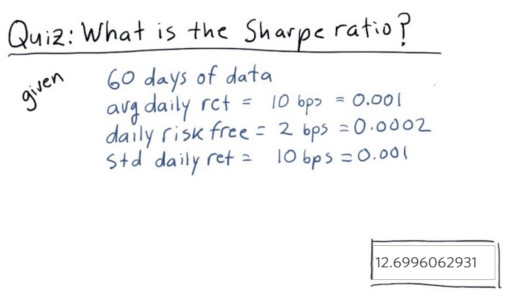 Quiz: What is the Sharpe ratio?
given
60 days of data
avg daily ret = 10 bps = 0.001
daily risk free = 2 bps = 0.0002
std daily ret = 10 bps = 0.001
12.6996062931